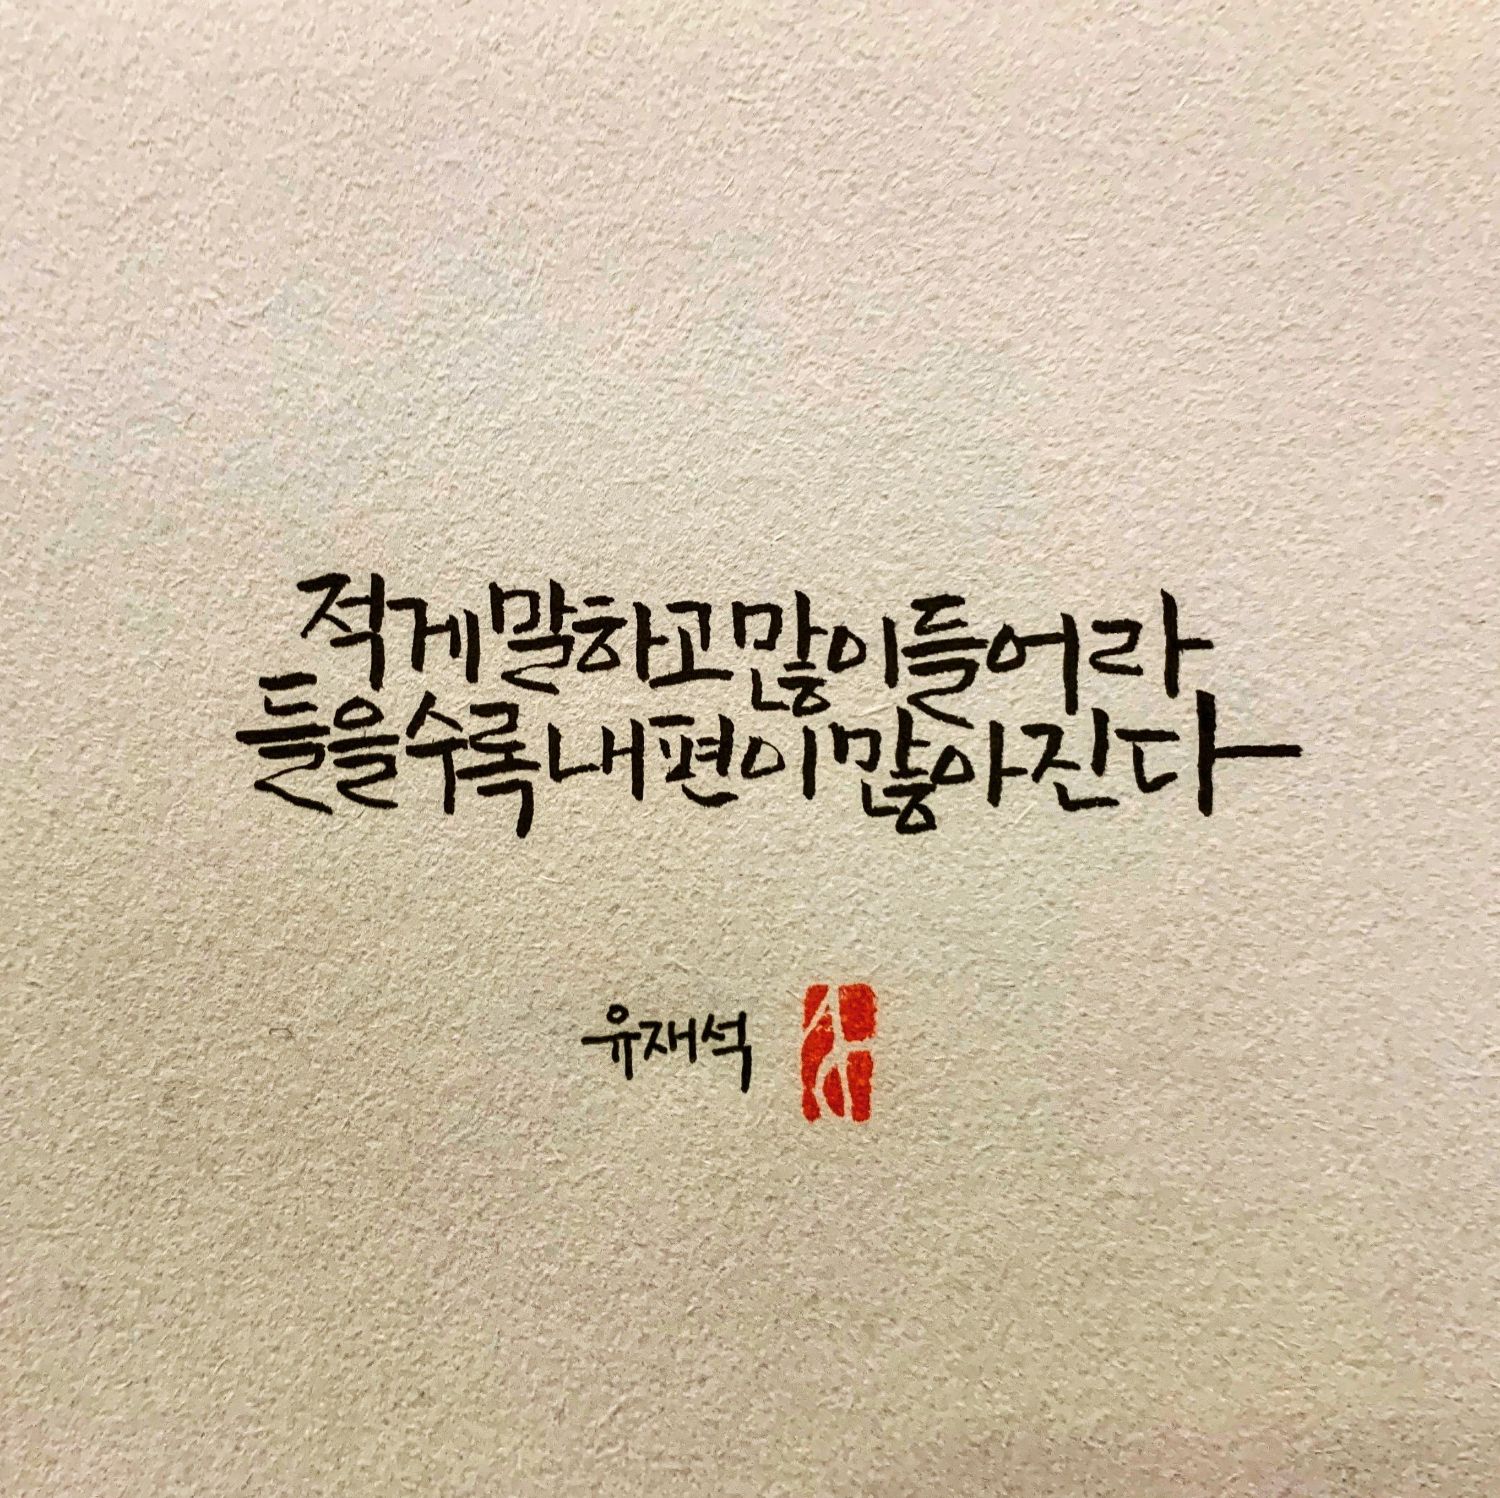 적게말하고많이들어라
들을수록내편이많아진다
유재석